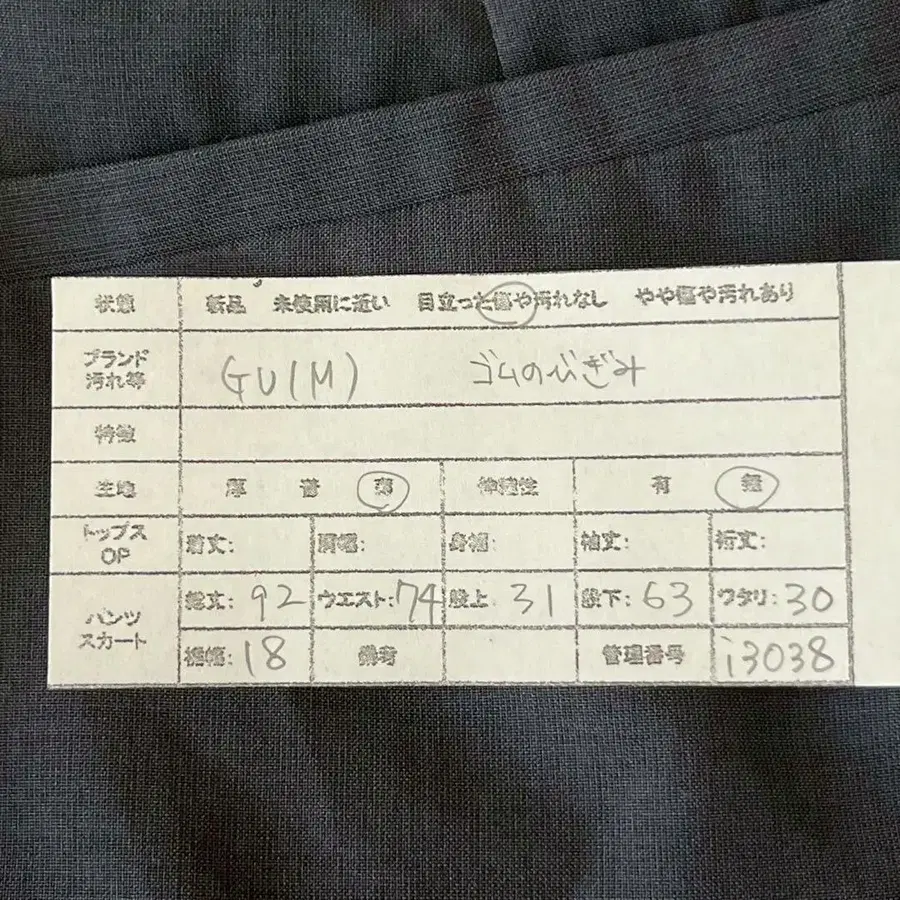 状態 新品 未使用に近い 目立った傷や汚れなし やや傷や汚れあり
ブランド 汚れ等 GU(M) ゴムのびぎみ
特徴
生地 厚 普 薄 伸縮性 有 無
トップス OP 着丈: 肩幅: 身幅: 袖丈: 裄丈:
パンツ スカート 総丈:92 ウエスト:74 股上:31 股下:63 ワタリ:30
裾幅:18 備考 管理番号 i3038